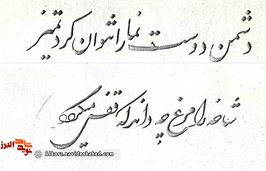 دشمن دوست نما را نتوان کرد تمیز
شاخه را مرغ چه داند که قفس میگردد
Alborz.navideshahed.com
البرز